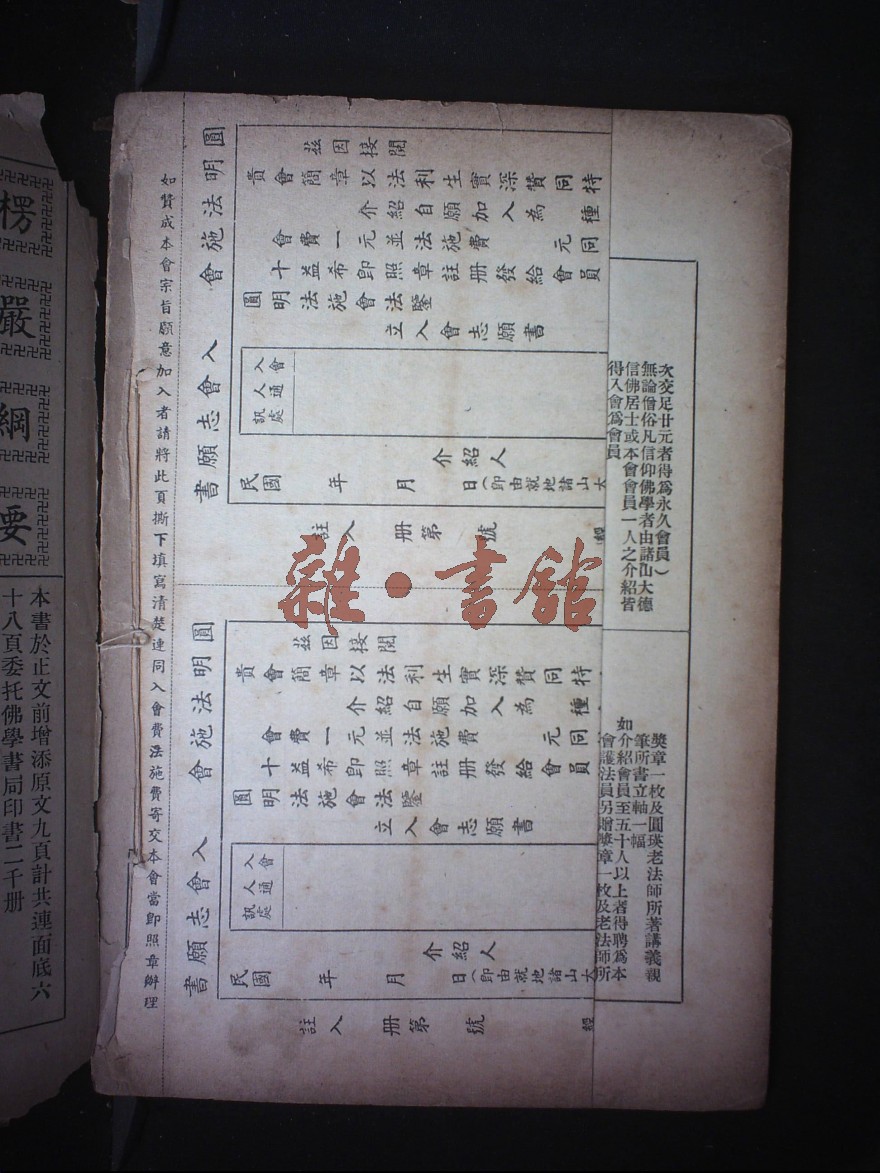 次交足廿元者得爲永久會員）
無論僧俗凡信仰佛學者由諸山大德
信佛居士或本會會員一人之介紹皆
得入會爲會員
獎章一枚及圓瑛老法師所著講義親
筆所書立軸一幅
如介紹會員至五十人以上者得聘爲本
會護法員另贈獎章一枚及老法師所
圓明法施會入會志願書
茲因接閱
貴會簡章以法利生實深贊同特
介紹自願加入為種
會費一元並法施費 元同
十益希卽照章註册發給會員
圓明法施會法鑒
立入會志願書
入會人通訊處
介紹人
民國 年 月 日（卽由就地諸山大
註入 册第 號 經
圓明法施會入會志願書
茲因接閱
貴會簡章以法利生實深贊同特
介紹自願加入為種
會費一元並法施費 元同
十益希卽照章註册發給會員
圓明法施會法鑒
立入會志願書
入會人通訊處
介紹人
民國 年 月 日（卽由就地諸山大
註入 册第 號 經
如贊成本會宗旨願意加入者請將此頁撕下填寫清楚連同入會費法施費寄交本會當卽照章辦理
楞嚴綱要
本書於正文前增添原文九頁計共連面底六
十八頁委托佛學書局印書二千册
雜·書舘